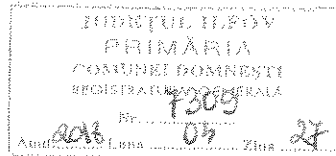 JUDEȚUL ILFOV
PRIMĂRIA
COMUNEI DOMNEȘTI
REGISTRATURA GENERALĂ
Nr. 7309
Anul 2018 Luna 04 Ziua 27